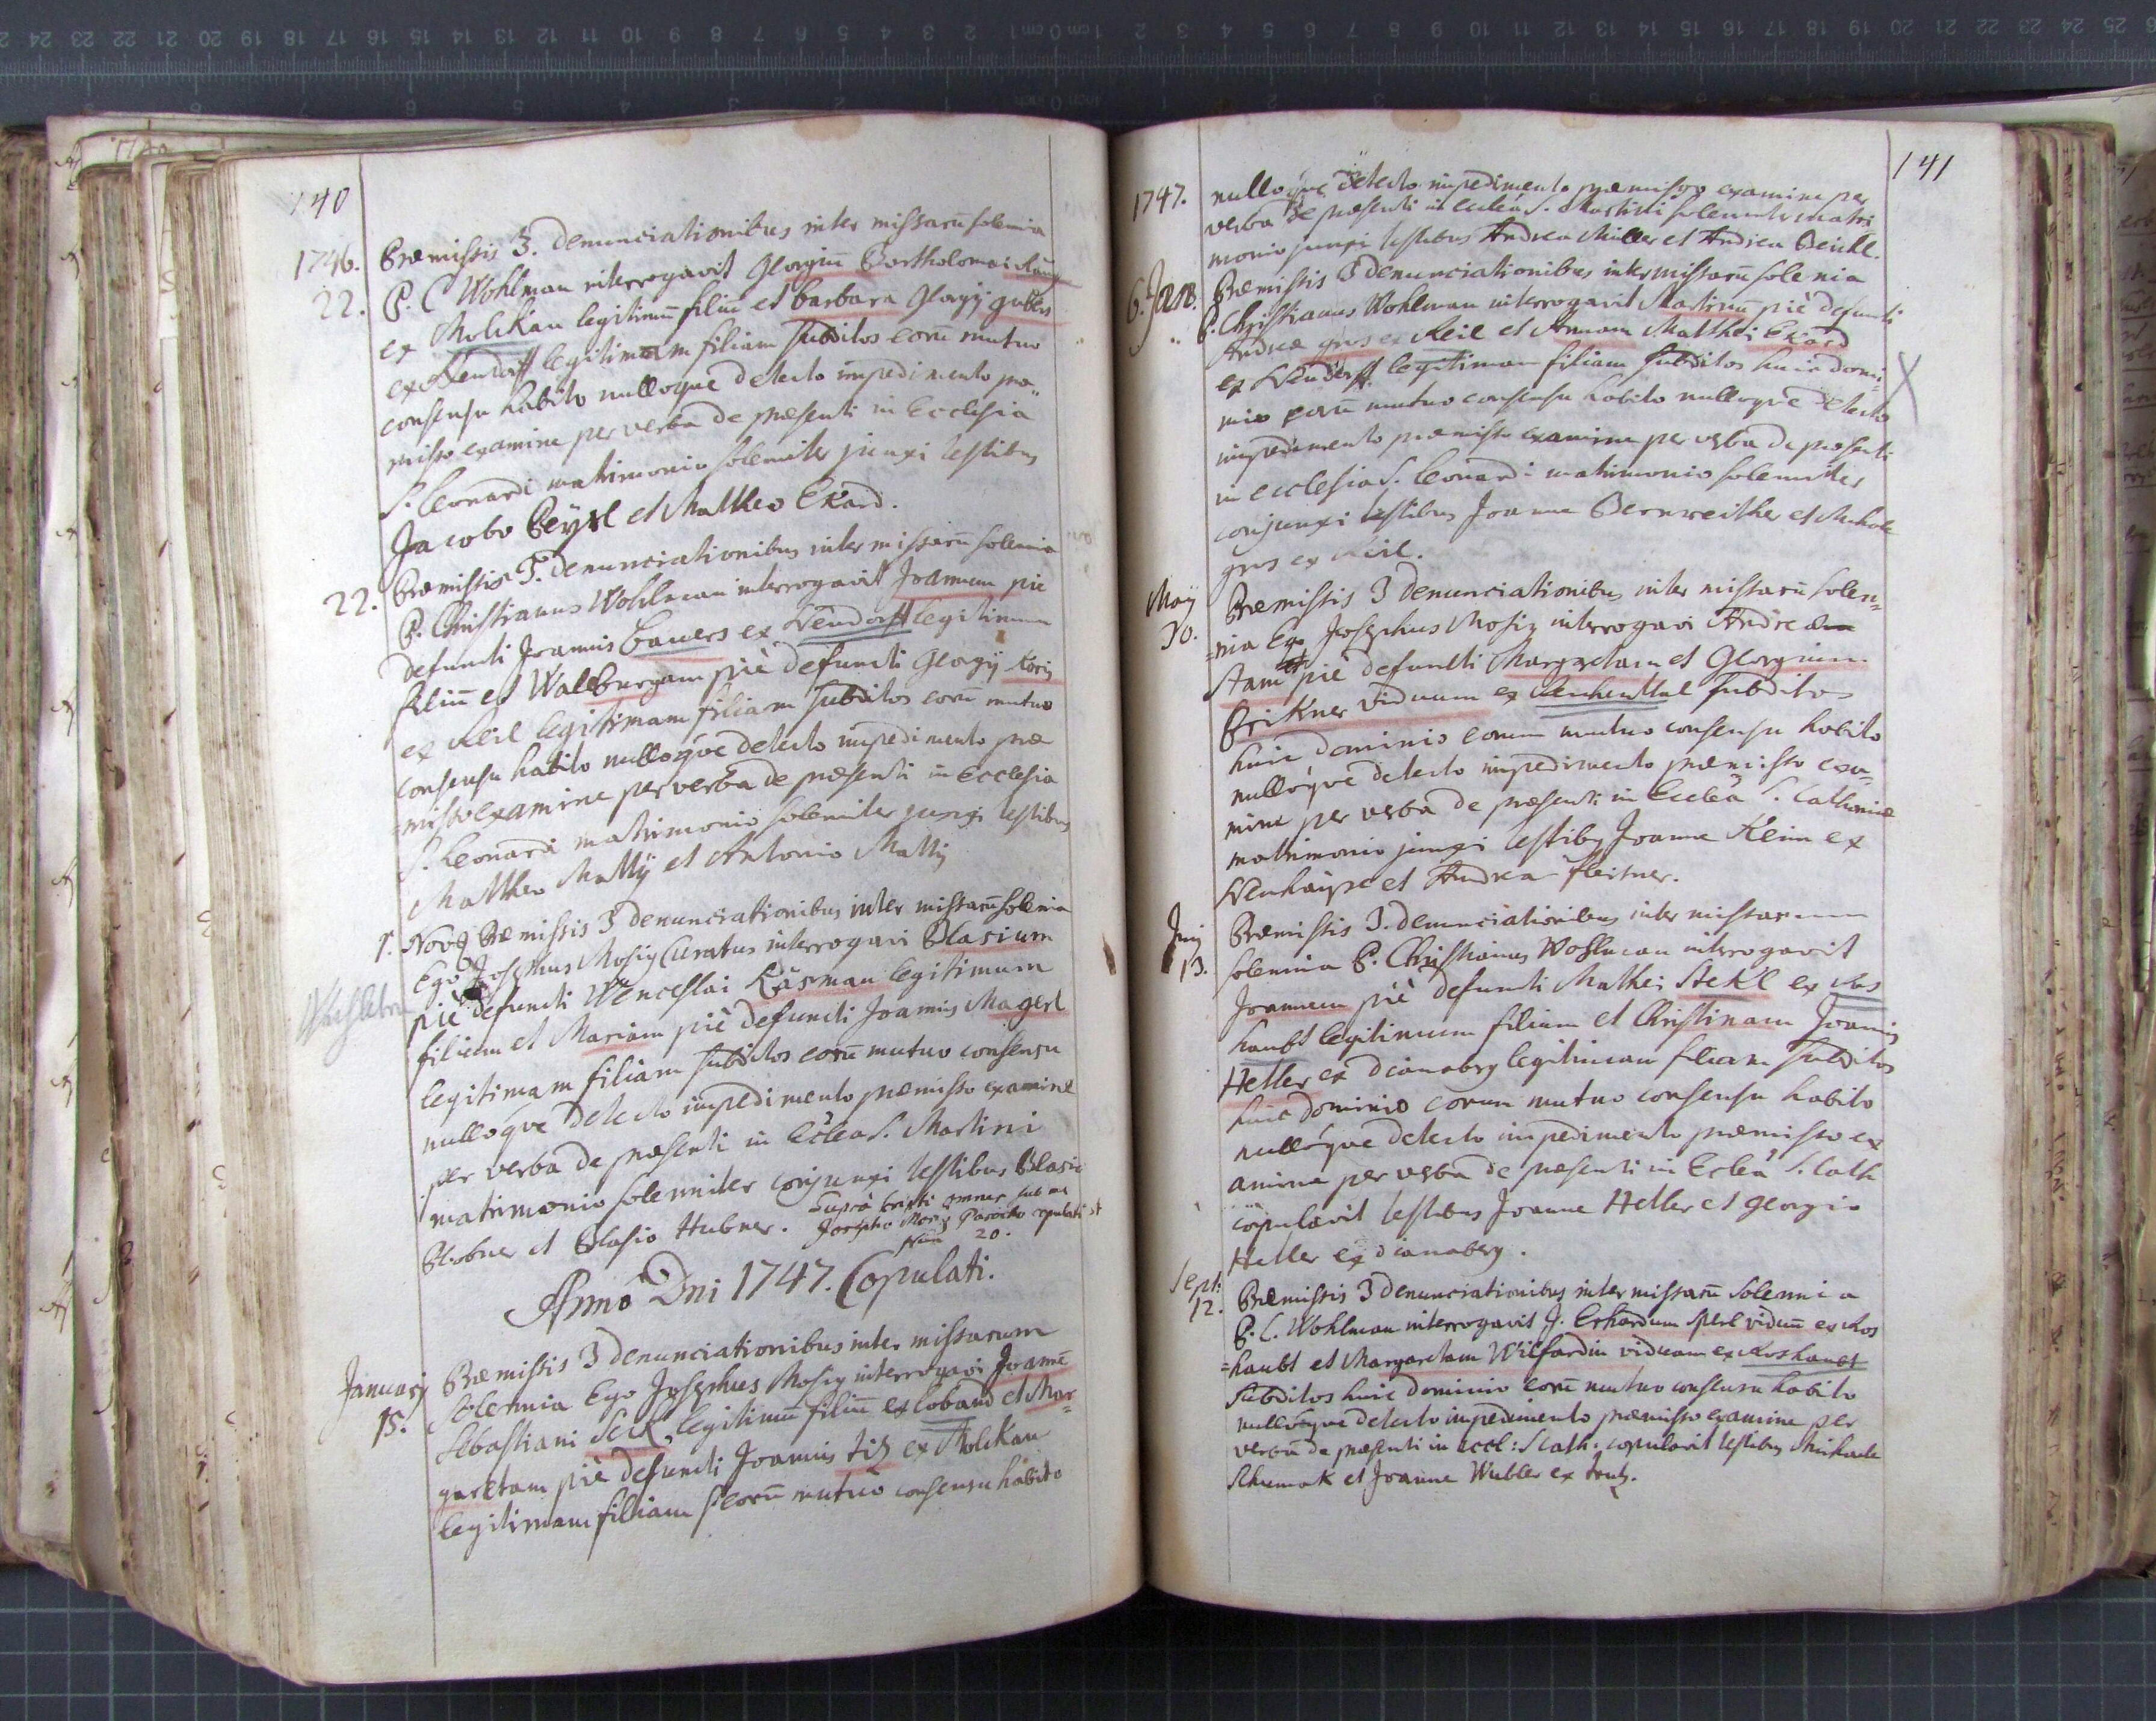 140
1746. Præmissis 3. denunciationibus inter missarū solemnia
22. P. C Wohlman interrogavit Georgiū Bartholomæi
ex Molikau legitimū filiū et barbara Georgÿ
ex Neudorff legitimam filiam subditos eorū mutuo
consensu habito nulloque detecto impedimento præ
misso examine per verba de præsenti in Ecclesia
S. Leonardi matrimonio solemniter junxi testibus
Jacobo Beÿxl et Matheo Ekard.
22. Præmissis 3. denunciationibus inter missarū solemnia
P. Christianus Wohlman interrogavit Joannem pie
defuncti Joannis bauers ex Neudorff legitimum
filiū et Walburgam piè defuncti Georgÿ
ex Keil legitimam filiam subditos eorū mutuo
consensu habito nulloque detecto impedimento præ
=misso examine per verba de præsenti in Ecclesia
S. Leonardi matrimonio solemniter junxi testibus
Mattheo Mattÿ et Antonio Mattÿ
1. Novē Præmissis 3 denunciationibus inter missarū solemnia
Ego Josephus Mosig Curatus interrogavi Blasium
piè defuncti Wenceslai Käsman legitimum
filium et Mariam piè defuncti Joannis Magerl
legitimam filiam subditos eorū mutuo consensu
nulloque detecto impedimento præmisso examine
per verba de præsenti in Eclea S. Martini
matrimonio solemniter conjunxi testibus Blasio
et Blasio Hubner. Supra scripti omnes sub me
Josepho Mosig Parocho copulati st
Nūm 20.
Anno Dni 1747. Copulati.
Januarÿ Præmissis 3 denunciationibus inter missarum
15. Solemnia Ego Josephus Mosig interrogavi Joanē
Sebastiani Seik, legitimū filiū ex Lobano et Mar=
garetam piè defuncti Joannis tiz ex Molikau
legitimam filiam s eorū mutuo consensu habito
141
1747. nulloque detecto impedimento præmisso examine per
verba de præsenti in eclea S. Martini solemniter matri
monio junxi testibus Andrea Miller et Andrea Beickl.
6. Præmissis 3 denunciationibus inter missarū solemnia
P. Christianus Wohlman interrogavit Martinū piè defuncti
Andreæ gros ex Keil et Annam Matthæi Ekard
ex Neudorff legitimam filiam subditos huic domi=
nio eorū mutuo consensu habito nulloque detecto
impedimento præmisso examine per verba de præsenti
in ecclesia S. Leonardi matrimonio solemniter
conjunxi testibus Joanne Bernreither et
gros ex Keil.
Maÿ Præmissis 3 denunciationibus inter missarū solem=
30. =nia Ego Josephus Mosig interrogavi Andreæ
Stam piè defuncti Margaretam et Georgium
Brikner viduum ex subditos
huic dominio eorum mutuo consensu habito
nulloque detecto impedimento præmisso exa=
mine per verba de præsenti in Eclea S. Catharinæ
matrimonio junxi testibq Joanne Keim ex
Neuhaÿsl et Andrea fleisner.
Junÿ Præmissis 3. denunciationibus inter missarum
13. solemnia P. Christianus Wohlman interrogavit
Joannem piè defuncti Mathei Stekl ex Ros
haubt legitimum filium et Christinam Joannis
Heller ex dianaberg legitimam filiam subditos
huic dominio eorum mutuo consensu habito
nulloque detecto impedimento præmisso ex
amine per verba de præsenti in Eclea S. Cath
copulavit testibus Joanne Heller et georgio
Heller ex dianaberg.
Sept: Præmissis 3 denunciationibus inter missarū solemnia
12. P. C. Wohlman interrogavit J. Erhardum Sperl viduū ex Ros
=haubt et Margaretam Wilfardin viduam ex Roshaubt
subditos huic dominio eorū mutuo consensu habito
nulloque detecto impedimento præmisso examine per
verba de præsenti in eccl: S Cath. copulavit testibus Michaele
Schumak et Joanne Wubler ex